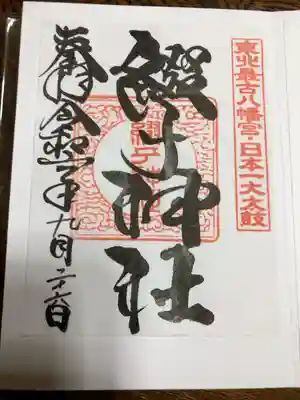 東北最古八幡宮・日本一大太鼓
綴子神社
奉拝 令和 年九月二十六日